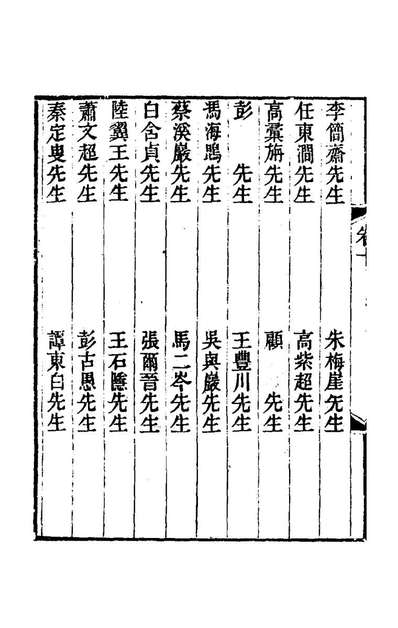 李簡齋先生 朱梅崖先生
任東澗先生 高紫超先生
高彙旃先生 顧 先生
彭 先生 王豐川先生
馮海鵾先生 吳與巖先生
蔡溪巖先生 馬二岑先生
白含貞先生 張爾晉先生
陸翼王先生 王石隱先生
蕭文超先生 彭古愚先生
秦定叟先生 譚東白先生
卷十